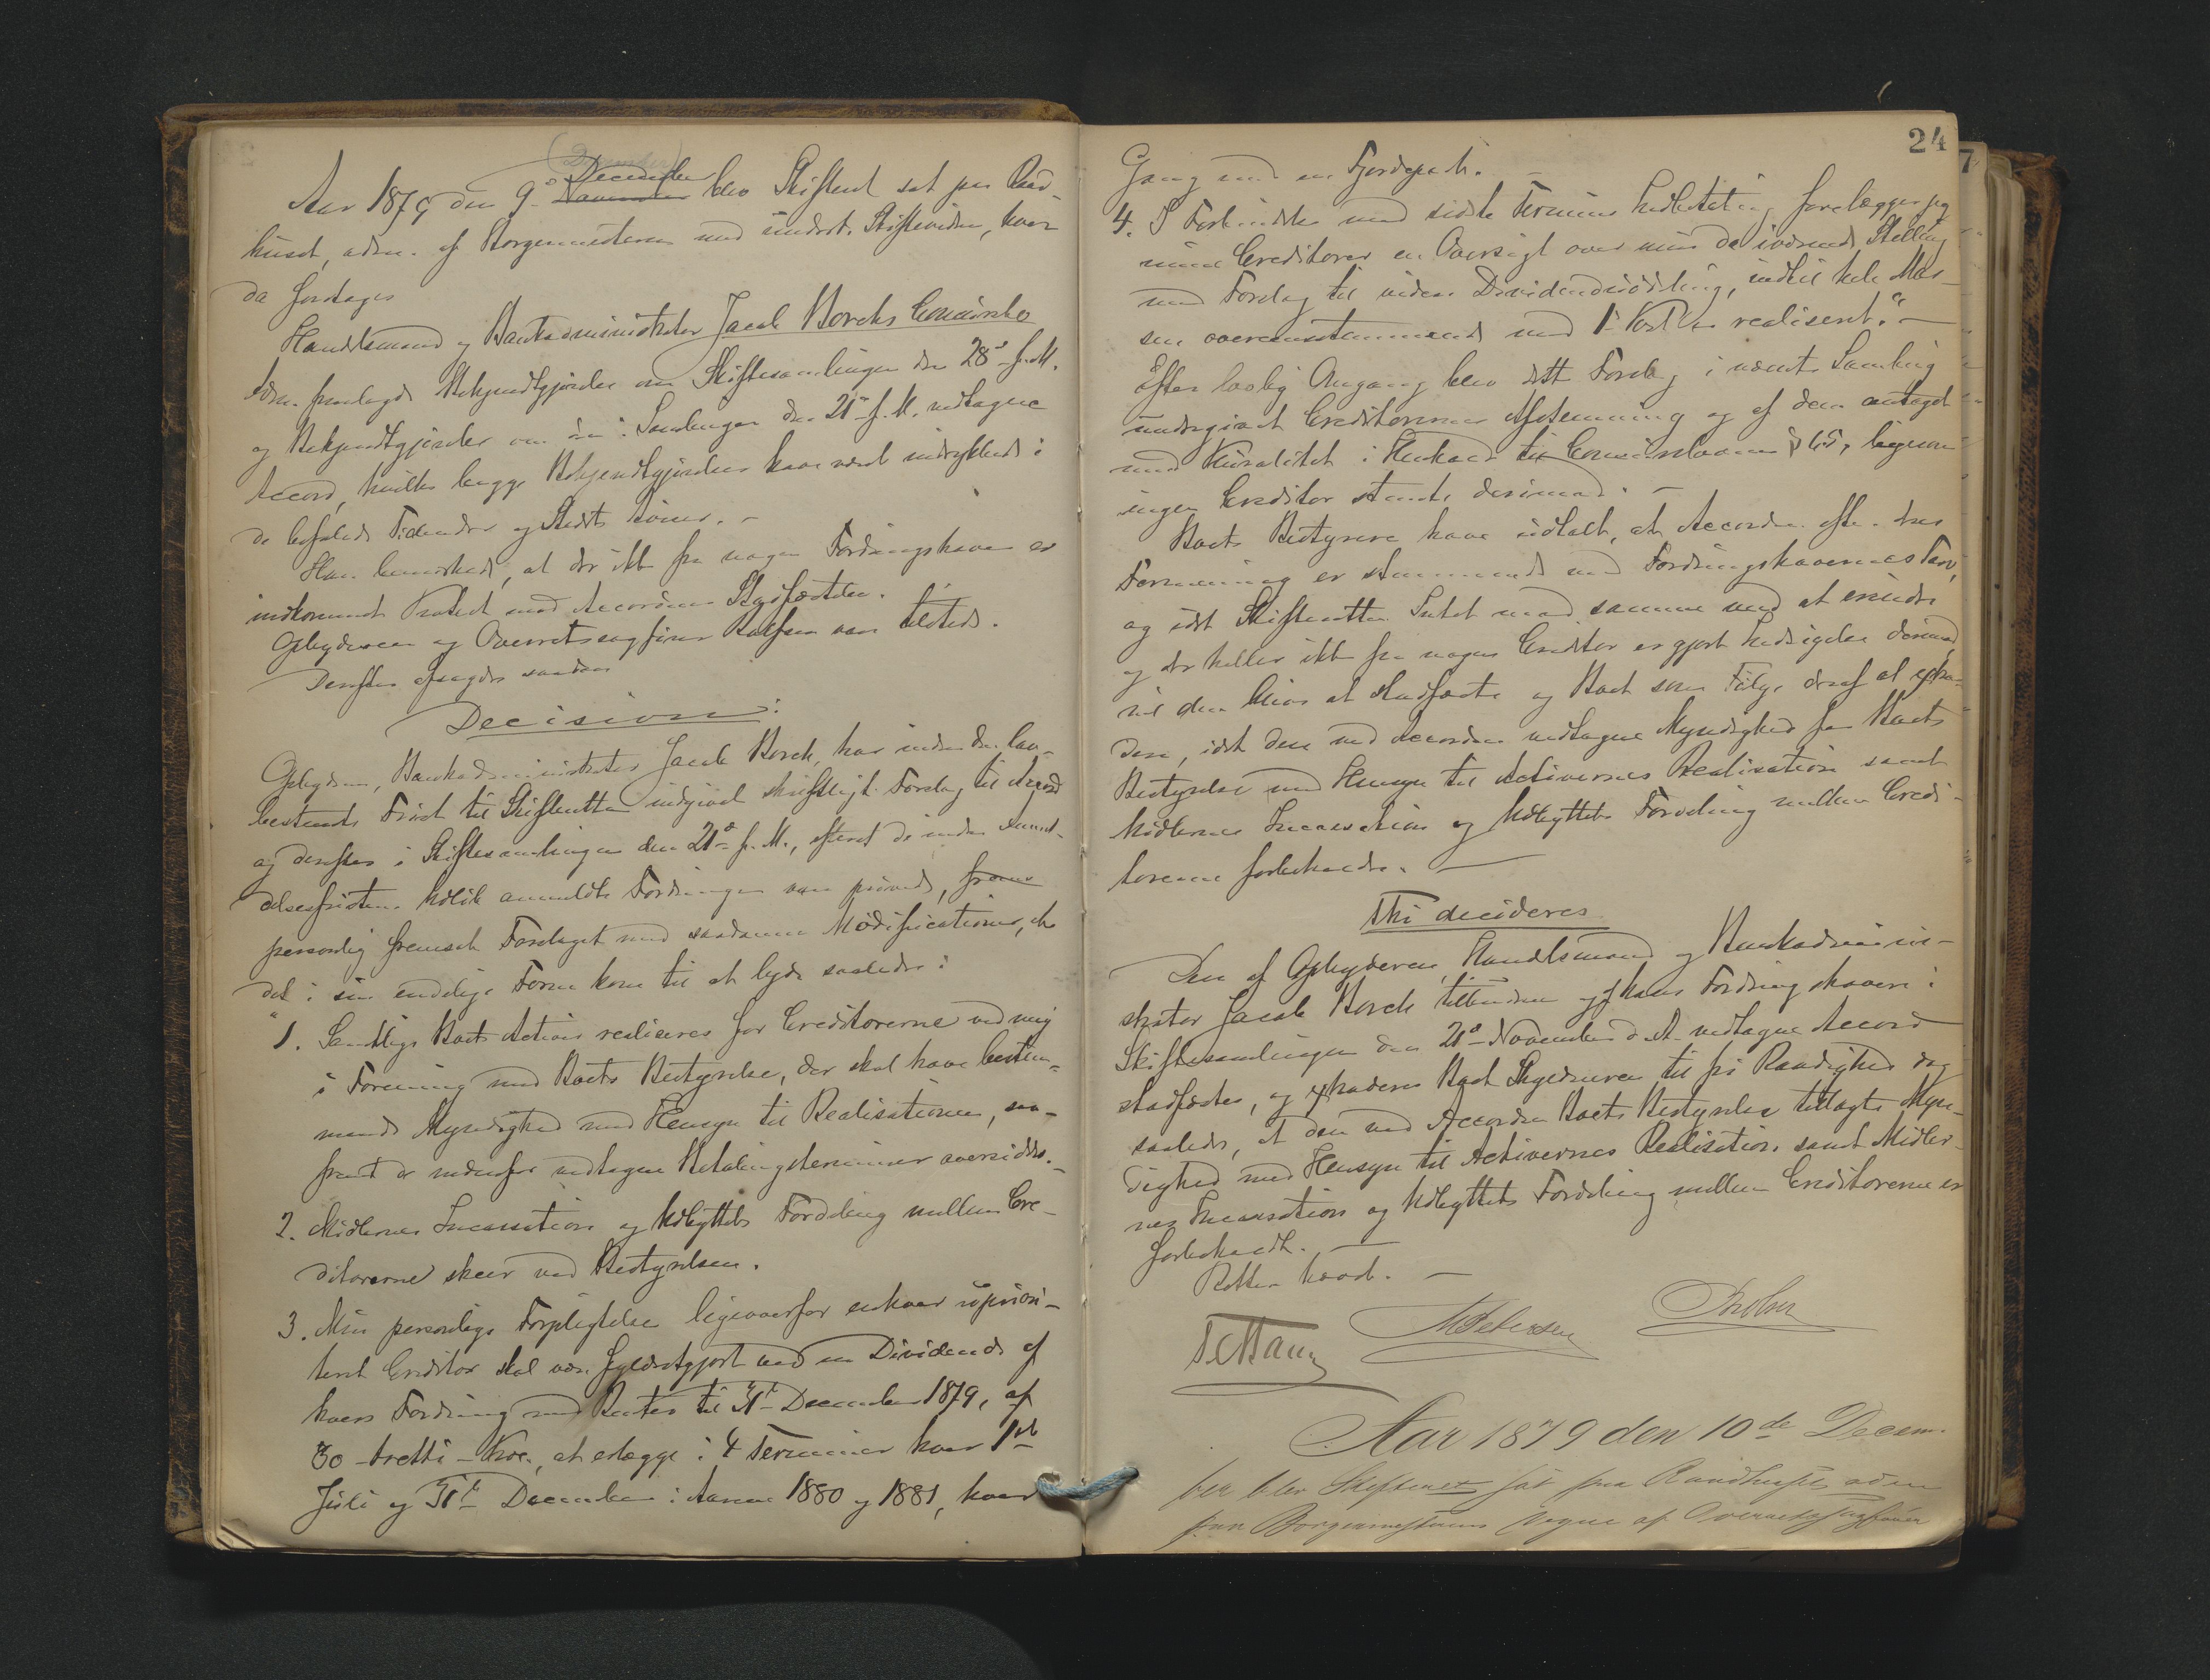 (December)
December
Aar 1879 den 9de November blev Skifteret sat paa Raad-
huset, adm. af Borgemesteren med undert. Skiftevidner, hvor
da foretages
Handelsmand og Bankadministrator Jacob Borchs Concursbo
Adm. fremlagde Bekjendtgjørelse om Skiftesamlingen den 28de f. M.
og Bekjendtgjørelse om den i Samlingen den 21de f. M. vedtagne
Accord, hvilke begge Bekjendtgjørelser have været indrykkede i
de befalede Tidender og Stedets Aviser. -
Han bemærkede, at der ikke fra nogen Fordringshaver er
indkommet Protest mod Accordens Stadfæstelse.
Opbyderen og Overretssagfører var tilstede.
Derefter afsagdes saadan
Decision:
Opbyderen, Bankadministrator Jacob Borch, har inden den lov-
bestemte Frist til Skifteretten indgivet skriftligt Forslag til Accord
og derefter i Skiftesamlingen den 21de f. M., efterat de inden Anmel-
delsesfristens Udløb anmeldte Fordringer vare prøvede, frem
personlig fremsat Forslaget med saadanne Modificationer, at
det i sin endelige Form kom til at lyde saaledes:
"1. Samtlige Boets Activa realiseres for Creditorerne ved mig
i Forening med Boets Bestyrelse, der skal have bestem-
mende Myndighed med Hensyn til Realisationen, saa-
fremt de nedenfor vedtagne Betalingsterminer oversiddes. -
2. Midlernes Incassation og Udbyttets Fordeling mellem Cre-
ditorerne skeer ved Bestyrelsen.
3. Min personlige Forpligtelse ligeoverfor enhver upriori-
teret Creditor skal være fyldestgjort ved en Dividende af
hvers Fordring med Renter til 31te December 1879, af
30 - tretti - Proc., at erlægge i 4 Terminer hver 1ste
Juli og 31te December i Aarene 1880 og 1881, hver
24
Gang med en Fjerdepart. -
4. I Forbindelse med sidste Termins Indbetaling forelægger jeg
mine Creditorer en Oversigt over min daværende Stilling
med Forslag til videre Dividendeuddeling, indtil hele Mas-
sen overensstemmende med 1ste Post er realiseret." -
Efter lovlig Omgang blev dette Forslag i nævnte Samling
undergivet Creditorernes Afstemning og af dem antaget
med Pluralitet i Henhold til Concurslovens § 65, ligesom
ingen Creditor stemte derimod. -
Boets Bestyrere have udtalt, at Accorden efter deres
Formening er stemmende med Fordringshavernes Tarv,
og idet Skifteretten Intet mod samme ved at erindre
og der heller ikke fra nogen Creditor er gjort Indsigelse derimod,
vil den blive at stadfæste og Boet som Følge deraf at extra-
dere, idet den ved Accorden vedtagne Myndighed for Boets
Bestyrelse med Hensyn til Activernes Realisation samt
Midlernes Incassation og Udbyttets Fordeling mellem Credi-
torerne forbeholdes. -
Thi decideres
Den af Opbyderen, Handelsmand og Bankadmini-
strator Jacob Borch tilbudne og af hans Fordringshavere i
Skiftesamlingen den 21de November d. A. vedtagne Accord
stadfæstes, og extraderes Boet Skyldneren til fri Raadighed dog
saaledes, at den ved Accorden Boets Bestyrelse tillagte Myn-
dighed med Hensyn til Activernes Realisation samt Midler-
nes Incassation og Udbyttets Fordeling mellem Creditorerne er
forbeholdt. -
Retten hævet. -
M Petersen
Aar 1879 den 10de Decem-
ber blev Skifteret sat paa Raadhuset, adm.
paa Borgermesterens Vegne af Overretssagfører